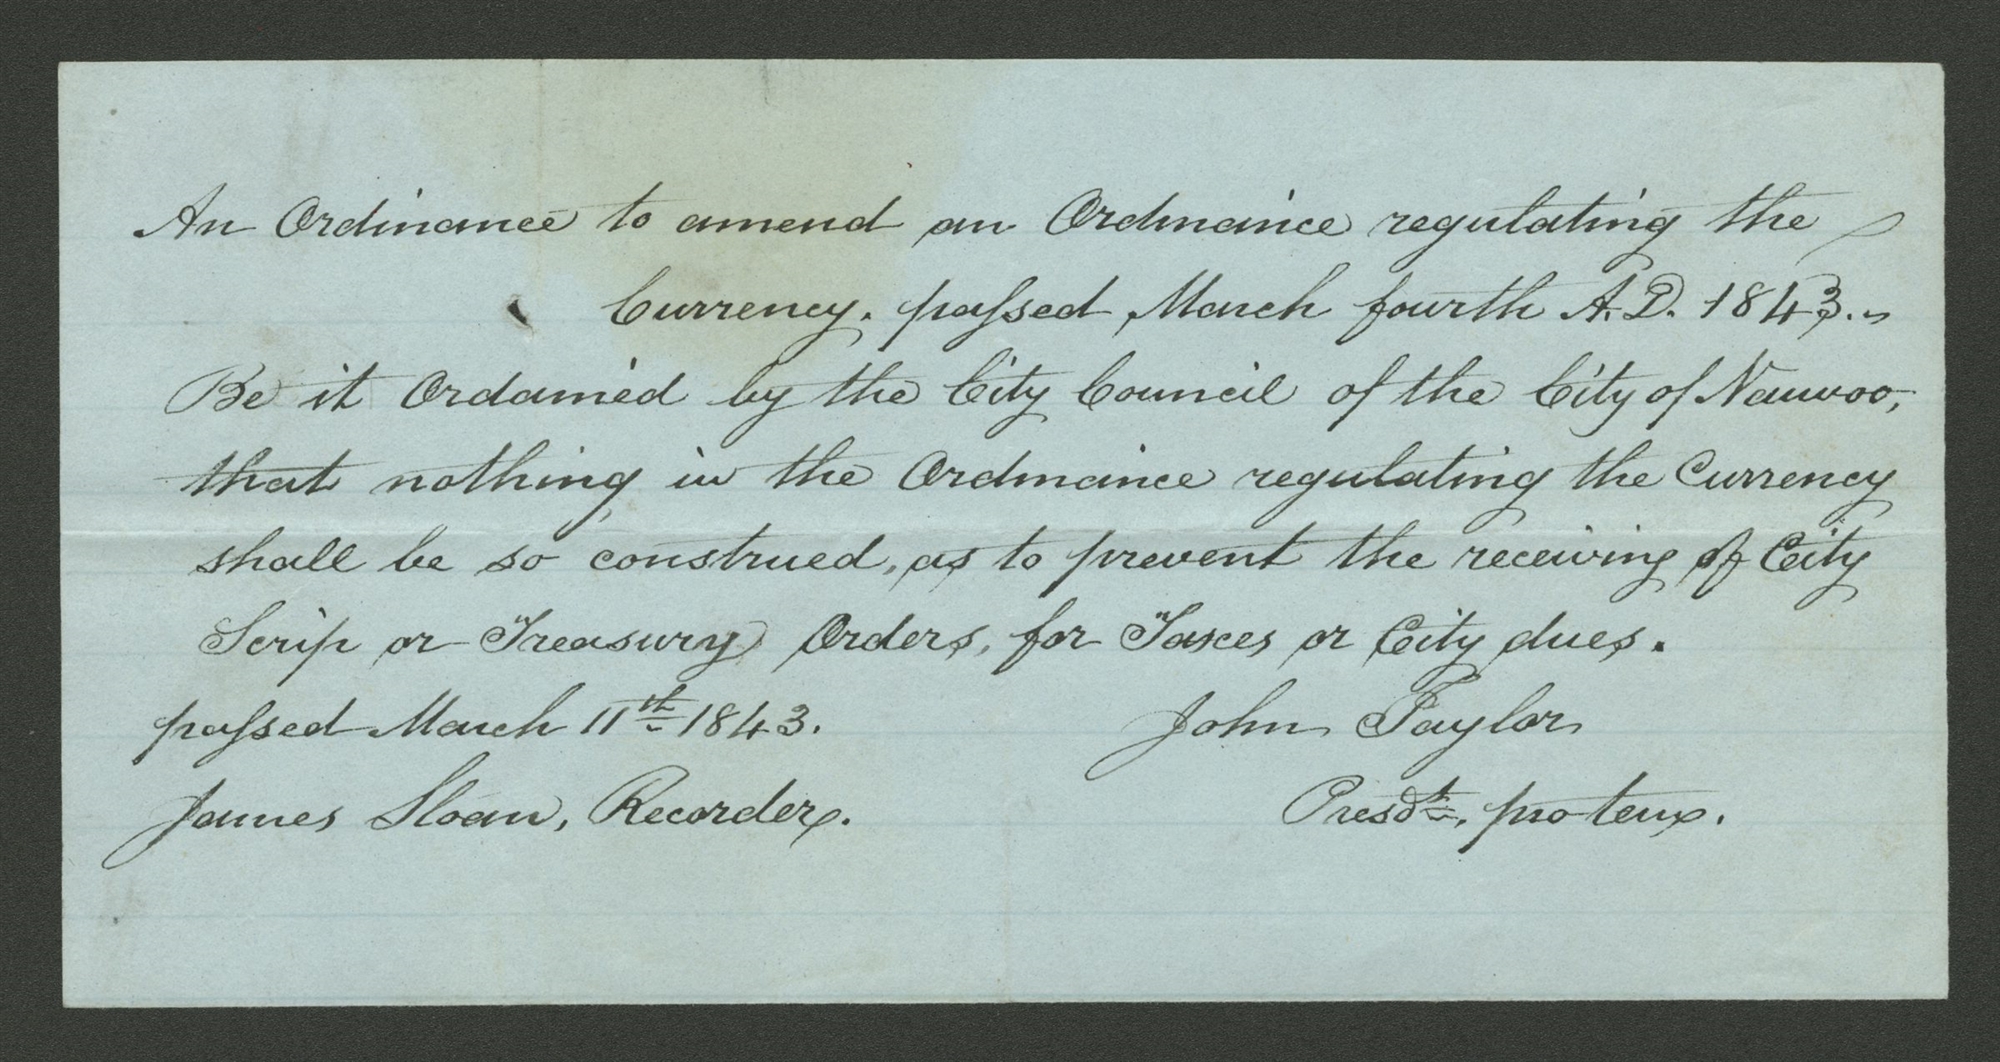 An Ordinance to amend an Ordinance regulating the
Currency. passed March fourth A.D. 1843.
Be it Ordained by the City Council of the City of Nauvoo,
that nothing in the Ordinance regulating the Currency
shall be so construed, as to prevent the receiving of City
Scrip or Treasury Orders, for Taxes or City dues.
passed March 11th 1843. John Taylor
James Sloan, Recorder. Presdt. protem.